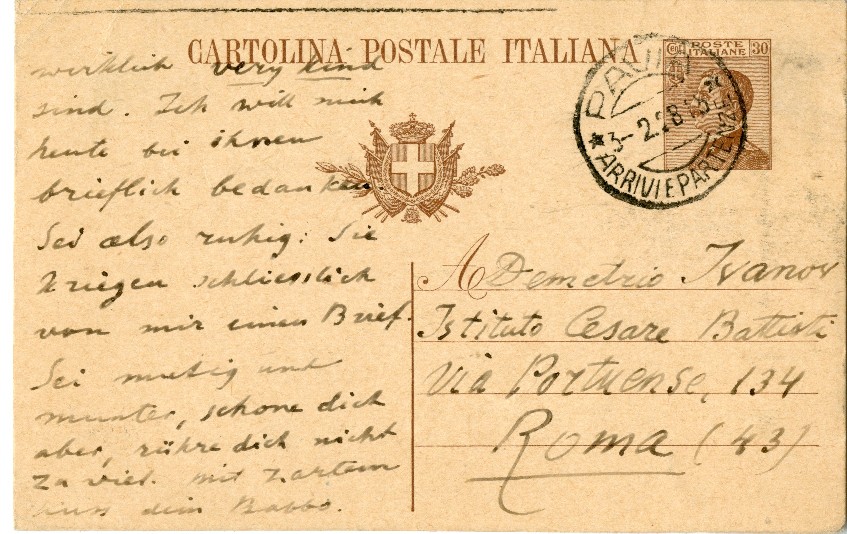 CARTOLINA POSTALE ITALIANA
POSTE
ITALIANE
30
PAVIA
3-2.28
ARRIVI E PARTENZE
wirklich very kind
sind. Ich will mich
heute bei ihnen
brieflich bedanken.
Sei also ruhig: Sie
kriegen schliesslich
von mir einen Brief.
Sei mutig und
munter, schone dich
aber, rühre dich nicht
zu viel. mit zartem
Kuss dein Babbo.
A Demetrio Ivanov
Istituto Cesare Battisti
Via Portuense, 134
Roma (43)